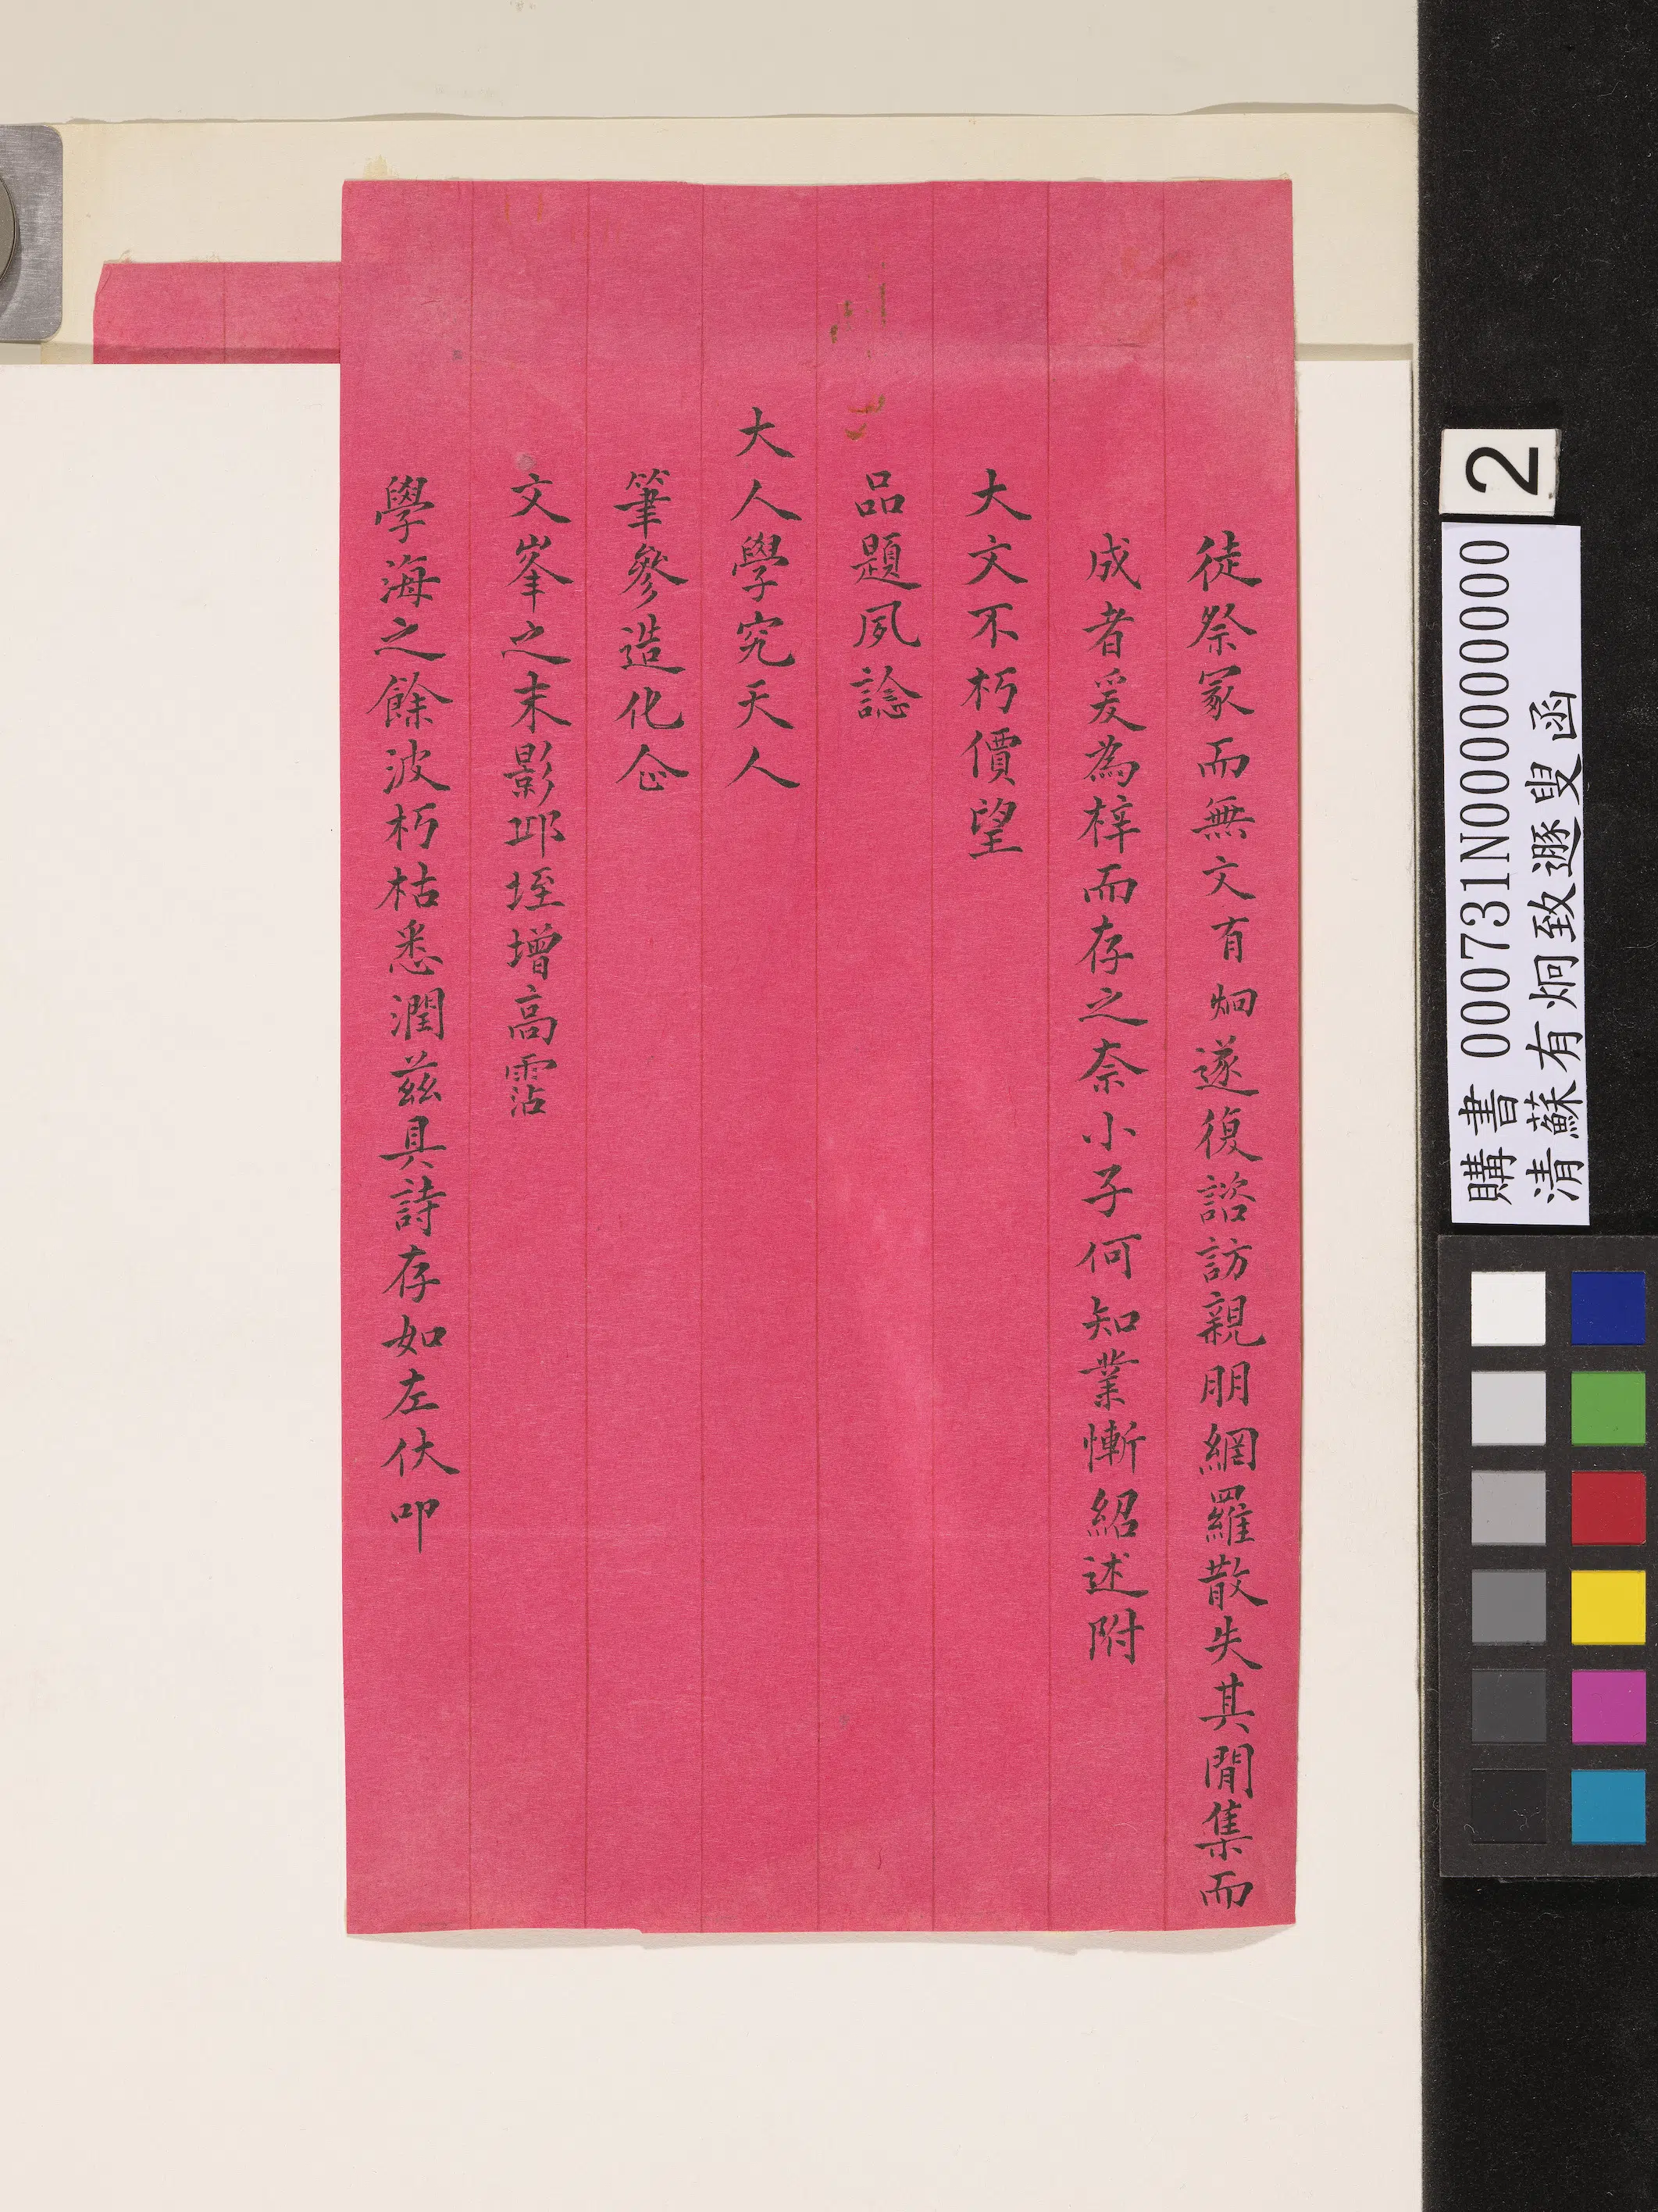 徒祭冢而無文有炯遂復諮訪親朋網羅散失其閒集而
成者爰為梓而存之奈小子何知業慚紹述附
大文不朽價望
品題夙諗
大人學究天人
筆參造化企
文峯之末影邱垤增高霑
學海之餘波朽枯悉潤茲具詩存如左伏叩
2
購書 000731N000000000
清蘇有炯致遯叟函